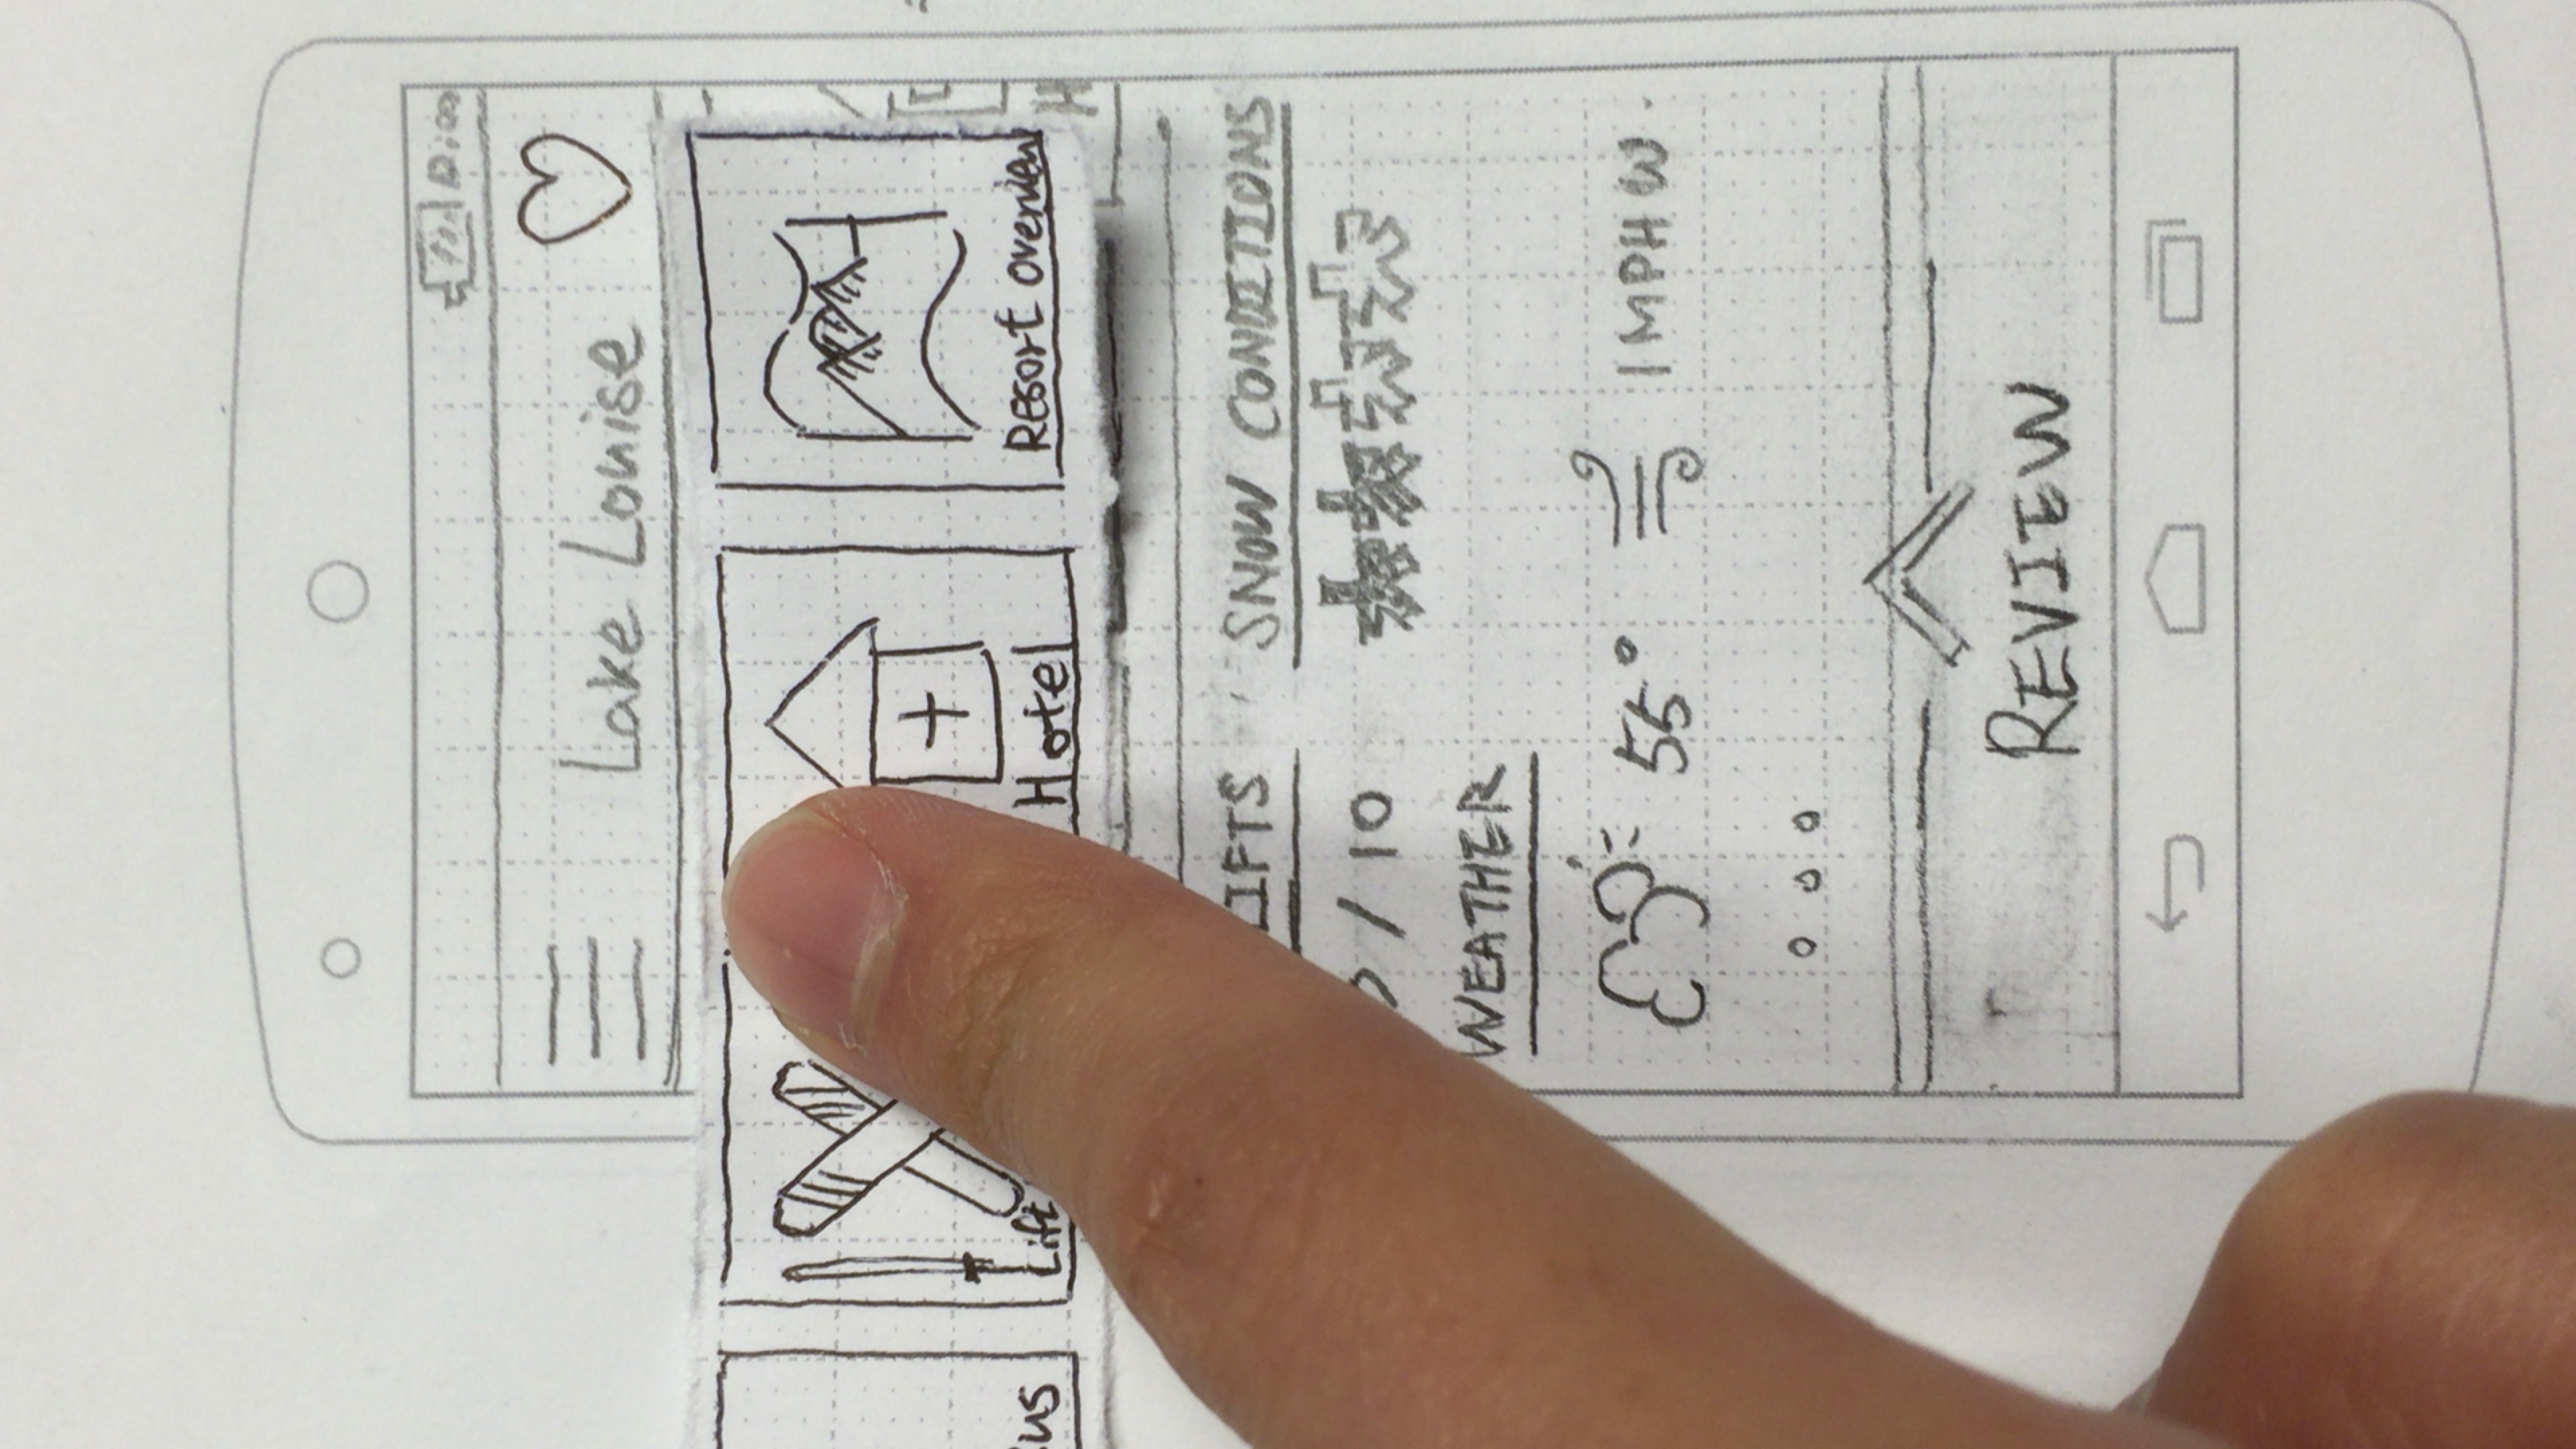 Lake Louise
Lift
Hotel
Resort overview
LIFTS
SNOW CONDITIONS
/ 10
WEATHER
55° 1 MPH W
REVIEW